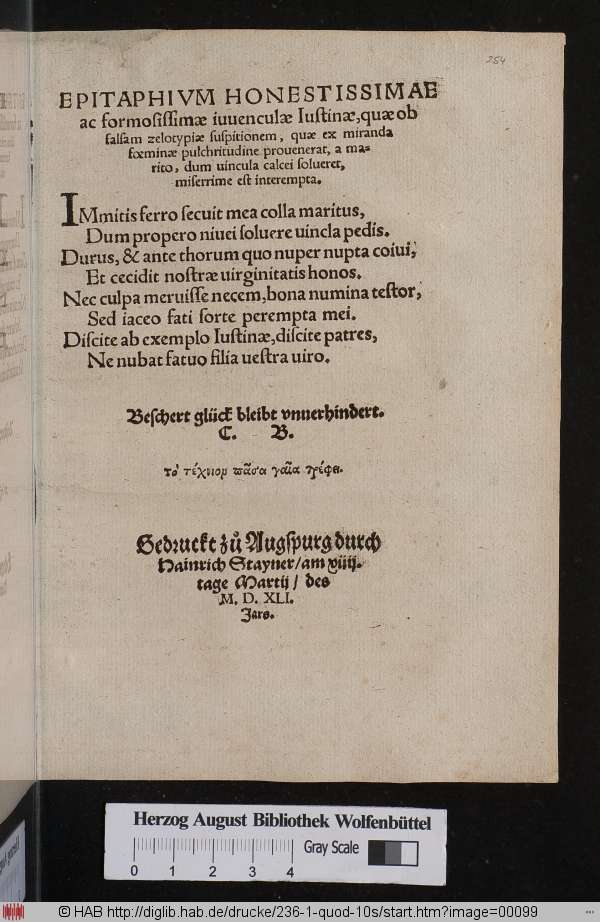 254
EPITAPHIVM HONESTISSIMAE
ac formosissimæ iuuenculæ Iustinæ, quæ ob
falsam zelotypiæ suspitionem, quæ ex miranda
fœminæ pulchritudine prouenerat, a ma-
rito, dum uincula calcei solueret,
miserrime est interempta.
IMmitis ferro secuit mea colla maritus,
Dum propero niuei soluere uincla pedis.
Durus, & ante thorum quo nuper nupta coiui,
Et cecidit nostræ uirginitatis honos.
Nec culpa meruisse necem, bona numina testor,
Sed iaceo fati sorte perempta mei.
Discite ab exemplo Iustinæ, discite patres,
Ne nubat fatuo filia uestra uiro.
Beschert glück bleibt vnuerhindert.
C. B.
τὸ τέχνιον πᾶσα γαῖα τρέφει.
Gedruckt zů Augspurg durch
Hainrich Stayner / am viiij.
tage Martij / des
M. D. XLI.
Jars.
Herzog August Bibliothek Wolfenbüttel
0 1 2 3 4 Gray Scale
© HAB http://diglib.hab.de/drucke/236-1-quod-10s/start.htm?image=00099